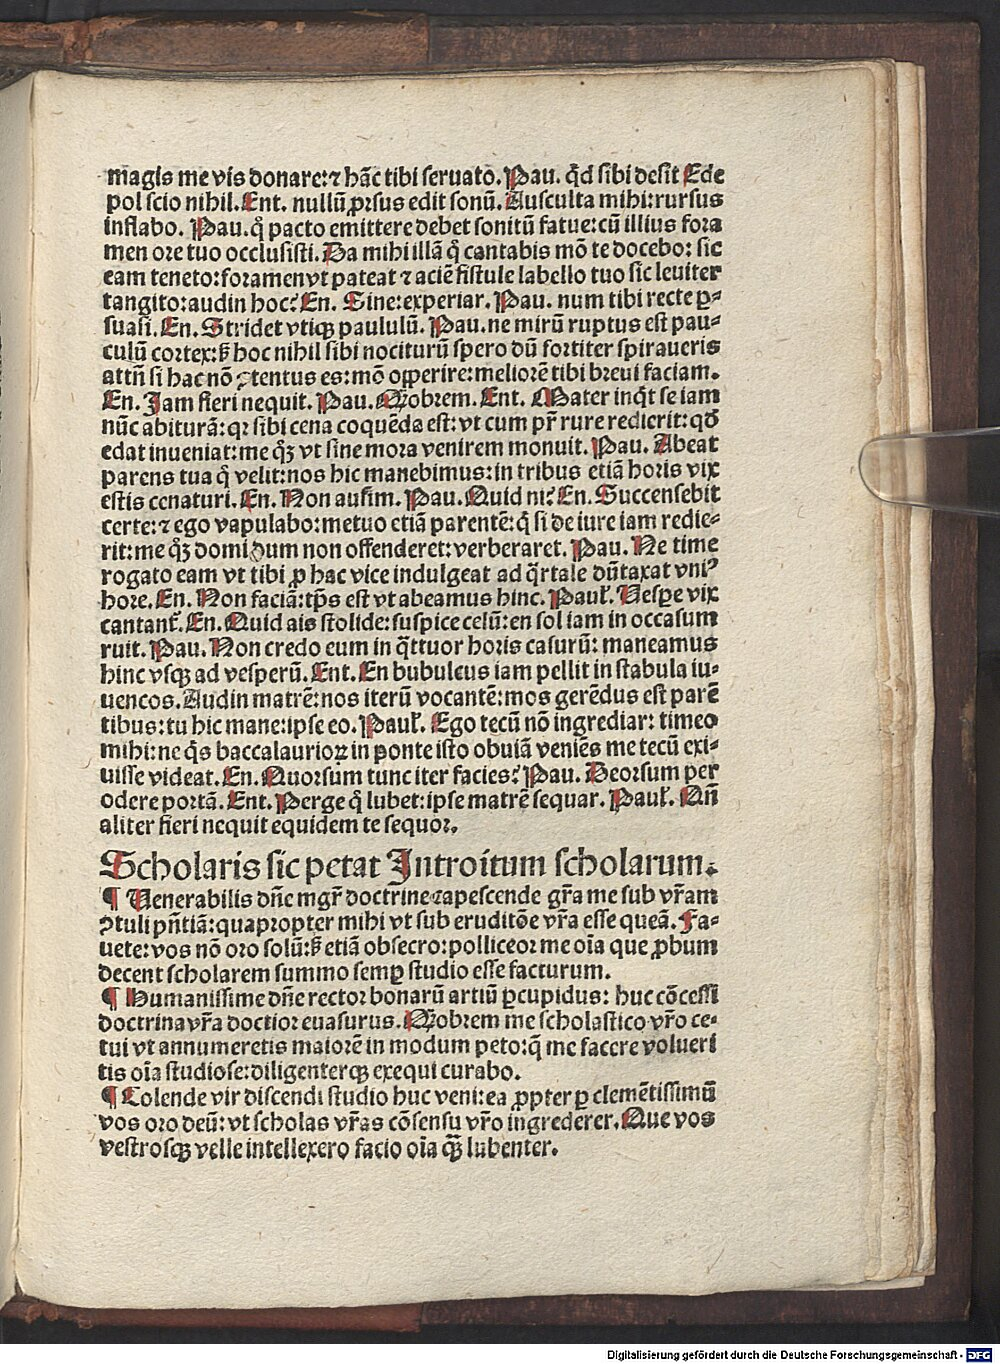 magis me vis donare:⁊ hāc tibi seruato. Pau. qd̄ sibi desit Ede
pol scio nihil. Ent. nullū ꝓrsus edit sonū. Ausculta mihi:rursus
inflabo. Pau. q̄ pacto emittere debet sonitū fatue:cū illius fora
men ore tuo occlusisti. Da mihi illā q̄ cantabis mō te docebo: sic
eam teneto:foramen vt pateat ⁊ aciē fistule labello tuo sic leuiter
tangito:audin hoc? En. Sine:experiar. Pau. num tibi recte ꝑ-
suasi. En. Stridet vtiqꝫ paululū. Pau. ne mirū ruptus est pau-
culū cortex:sꝫ hoc nihil sibi nociturū spero dū fortiter spiraueris
attn̄ si hac nō ꝯtentus es:mō opperire:meliorē tibi breui faciam.
En. Jam fieri nequit. Pau. Qōbrem. Ent. Mater inq̄t se iam
nūc abiturā: qꝛ sibi cena coquēda est: vt cum pr̄ rure redierit: qd̄
edat inueniat:me qꝫ vt sine mora venirem monuit. Pau. Abeat
parens tua q̄ velit:nos hic manebimus:in tribus etiā horis vix
estis cenaturi. En. Non ausim. Pau. Quid ni? En. Succensebit
certe:⁊ ego vapulabo:metuo etiā parentē:q̄ si de iure iam redie-
rit:me qꝫ domi dum non offenderet:verberaret. Pau. Ne time
rogato eam vt tibi ꝓ hac vice indulgeat ad q̄rtale dūtaxat vniꝰ
hore. En. Non faciā:tp̄s est vt abeamus hinc. Paul. Vespe vix
cantant. En. Quid ais stolide:suspice celū:en sol iam in occasum
ruit. Pau. Non credo eum in q̄ttuor horis casurū: maneamus
hinc vsqꝫ ad vesperū. Ent. En bubulcus iam pellit in stabula iu-
uencos. Audin matrē:nos iterū vocantē:mos gerēdus est parē
tibus:tu hic mane:ipse eo. Paul. Ego tecū nō ingrediar: timeo
mihi:ne q̄s baccalaurioꝝ in ponte isto obuiā veniēs me tecū exi-
uisse videat. En. Quorsum tunc iter facies? Pau. Deorsum per
odere portā. Ent. Perge q̄ lubet:ipse matrē sequar. Paul. Qn̄
aliter fieri nequit equidem te sequor.
Scholaris sic petat Introitum scholarum.
¶ Venerabilis dn̄e mgr̄ doctrine capescende gr̄a me sub vr̄am
ꝯtuli pn̄tiā:quapropter mihi vt sub eruditōe vr̄a esse queā. Fa-
uete:vos nō oro solū:sꝫ etiā obsecro:polliceor me oīa que ꝓbum
decent scholarem summo semꝑ studio esse facturum.
¶ Humanissime dn̄e rector bonarū artiū ꝑcupidus: huc cōcessi
doctrina vr̄a doctior euasurus. Qōbrem me scholastico vr̄o ce-
tui vt annumeretis maiorē in modum peto:q̄ me facere volueri
tis oīa studiose:diligenterqꝫ exequi curabo.
¶ Colende vir discendi studio huc veni:ea ꝓpter ꝑ clemētissimū
vos oro deū:vt scholas vr̄as cōsensu vr̄o ingrederer. Que vos
vestrosqꝫ velle intellexero facio oīa qꝫ̄ lubenter.
Digitalisierung gefördert durch die Deutsche Forschungsgemeinschaft - DFG